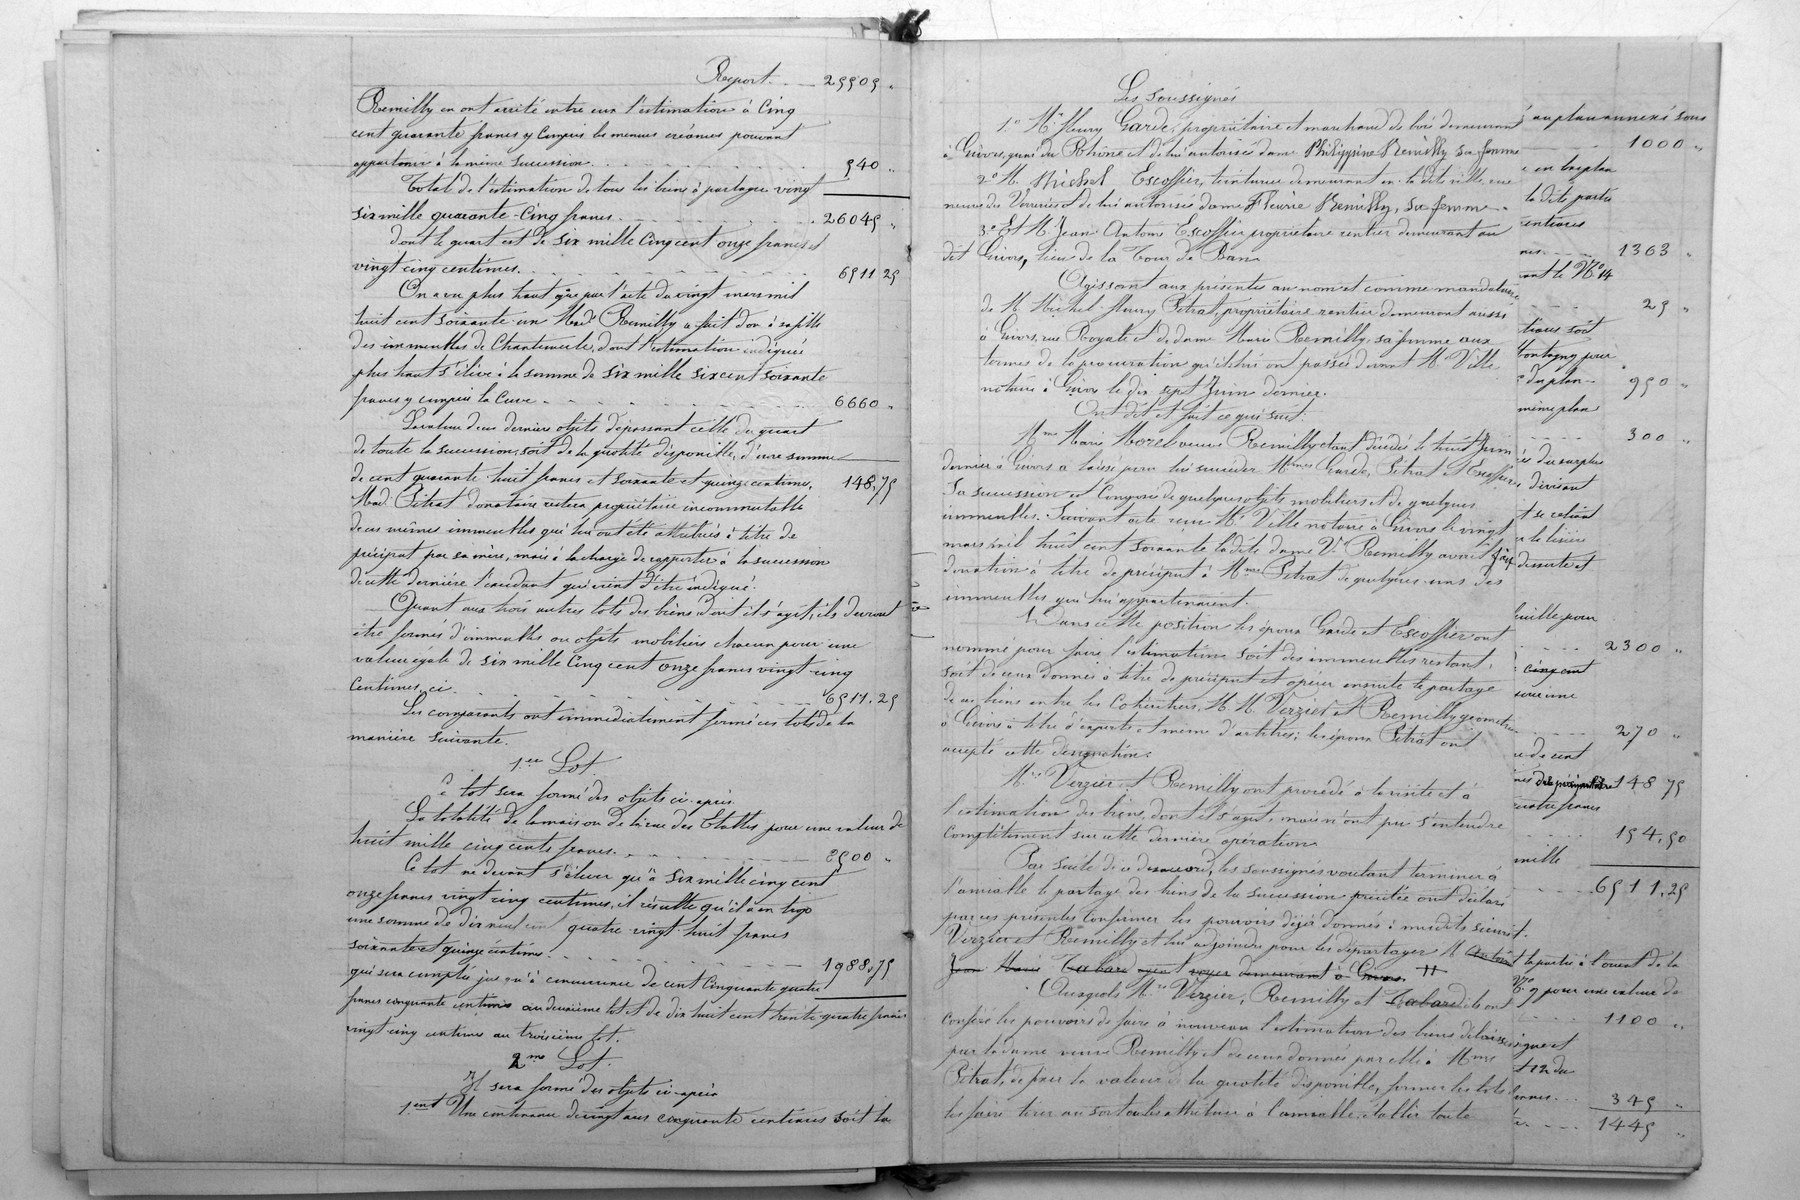 Report. 25505 "
Remilly en ont arrêté entre eux l'estimation à Cinq
cent quarante francs y compris les menues créances pouvant
appartenir à la même succession. 540 "
Total de l'estimation de tous les biens à partager vingt
six mille quarante-Cinq francs. 26045 "
dont le quart est de six mille Cinq cent onze francs et
vingt cinq centimes. 6511 25
On a vu plus haut que par l'acte du vingt mars mil
huit cent soixante-un Made Remilly a fait don à sa fille
des immeubles de Chantemerle, dont l'estimation indiquée
plus haut s'élève à la somme de six mille six cent soixante
francs y compris la Cuve. 6660 "
La valeur de ces derniers objets dépassant celle du quart
de toute la succession, soit de la quotité disponible, d'une somme
de cent quarante-huit francs et soixante et quinze centimes, 148,75
Mad. Pitrat donataire restera propriétaire incommutable
de ces mêmes immeubles qui lui ont été attribués à titre de
préciput par sa mère, mais à la charge de rapporter à la succession
de cette dernière l'excédant qui vient d'être indiqué.
Quant aux trois autres lots des biens dont il s'agit, ils devront
être formés d'immeubles ou objets mobiliers chacun pour une
valeur égale de six mille Cinq cent onze francs vingt-cinq
Centimes, ci. 6511.25
Les comparants ont immédiatement formé ces lots de la
manière suivante.
1er Lot
Ce lot sera formé des objets ci-après.
La totalité de la maison de la rue des Etables pour une valeur de
huit mille cinq cents francs. 8500 "
Ce lot ne devant s'élever qu'à six mille cinq cent
onze francs vingt cinq centimes, il résulte qu'il a en trop
une somme de dix neuf cent quatre-vingt-huit francs
soixante et quinze centimes. 1988,75
qui sera comptée jusqu'à concurrence de cent Cinquante quatre
francs cinquante centimes au deuxième lot et de dix huit cent trente quatre francs
vingt cinq centimes au troisième lot.
2me Lot.
Il sera formé des objets ci-après
1ent Une contenance de vingt ares cinquante centiares soit la
Les soussignés
1° M. fleury Garde, propriétaire et marchand de bois demeurant
à Givors, quai du Rhône et de lui autorisée dame Philippine Remilly sa femme
2° M. Michel Escoffier, teinturier demeurant en la dite ville, rue
neuve des Verreries et de lui autorisée dame Fleurie Remilly, sa femme.
3° Et M. Jean Antoine Escoffier propriétaire rentier demeurant au
dit Givors, lieu de la Tour de Ban
Agissant aux présentes au nom et comme mandataire
de M. Michel fleury Pitrat, propriétaire rentier demeurant aussi
à Givors, rue Royale et de dame Marie Remilly, sa femme aux
termes de la procuration qu'ils lui ont passée devant Me Ville
notaire à Givors le dix sept Juin dernier.
Ont dit et fait ce qui suit.
Mme Marie Morel veuve Remilly étant décédée le huit Juin
dernier à Givors a laissé pour lui succéder Mmes Garde, Pitrat et Escoffier,
Sa succession est Composée de quelques objets mobiliers et de quelques
immeubles. Suivant acte reçu Me Ville notaire à Givors le vingt
mars mil huit cent soixante la dite dame Ve Remilly avait fait
donation à titre de préciput à Mme Pitrat de quelques-uns des
immeubles qui lui appartenaient.
Dans cette position les époux Garde et Escoffier ont
nommé pour faire l'estimation soit des immeubles restant,
soit de ceux donnés à titre de préciput et opérer ensuite le partage
de ces biens entre les Cohéritiers, M.M. Verzier et Remilly géomètres
à Givors à titre d'experts et même d'arbitres: les époux Pitrat ont
accepté cette désignation.
Mrs Verzier et Remilly ont procédé à la visite et à
l'estimation des biens, dont il s'agit, mais n'ont pu s'entendre
Complètement sur cette dernière opération
Par suite de ce désaccord, les soussignés voulant terminer à
l'amiable le partage des biens de la succession précitée ont déclaré
par ces présentes Confirmer les pouvoirs déjà donnés à mesdits sieurs
Verzier et Remilly et lui adjoindre pour les départager M.
Jean Marie Tabard agent voyer demeurant à Givors #
Auxquels Mrs Verzier, Remilly et Tabard ils ont
conféré les pouvoirs de faire à nouveau l'estimation des biens délaissés
par la dame veuve Remilly et de ceux donnés par elle à Mme
Pitrat, de fixer la valeur de la quotité disponible, former les lots
les faire tirer au sort ou les attribuer à l'amiable, établir toute
au plan annexé sous
1000 "
la dite partie
centiares
1363 "
No 14
25 "
soit
Montagny pour
du plan
950 "
même plan
300 "
du surplus
devisant
et se retirant
la lisière
desserte et
feuille pour
2300 "
cinq cent
pour une
270 "
de cent
148 75
quatre francs
154,50
mille
6511,25
la partie à l'ouest de la
No 9 pour une valeur de
1100 "
vigne et
et 12 du
345 "
1445 "